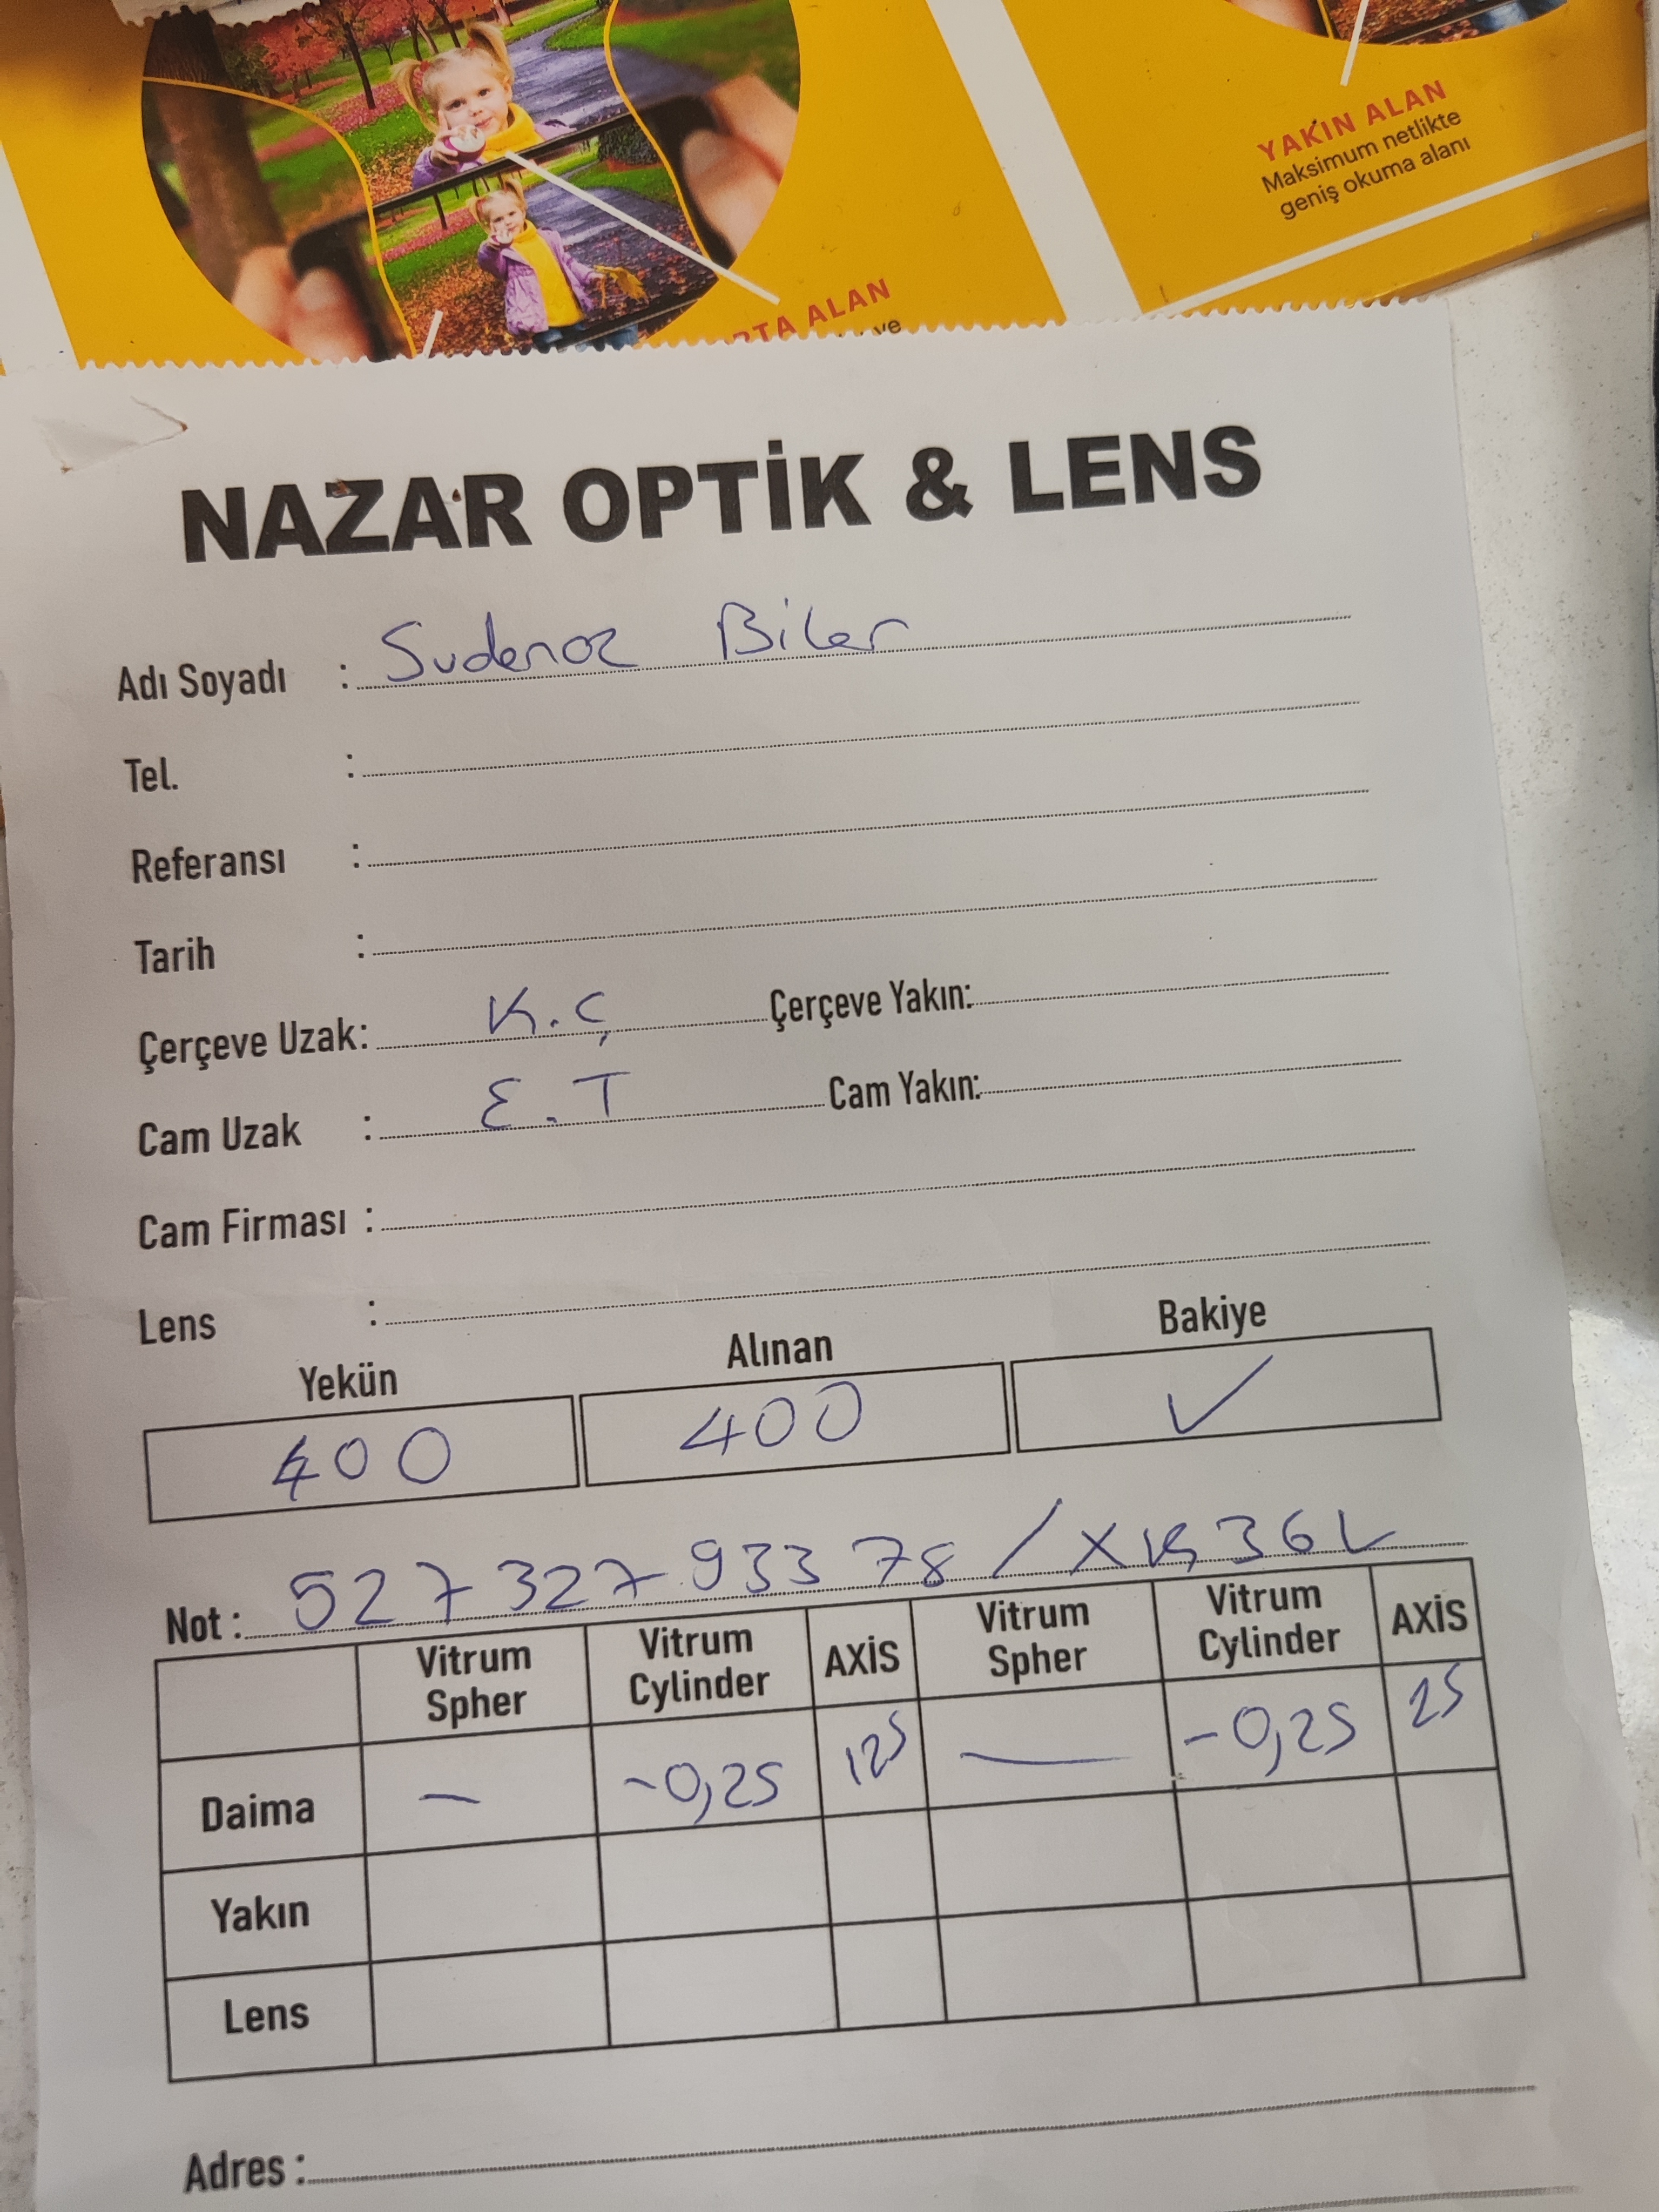 YAKIN ALAN
Maksimum netlikte
geniş okuma alanı
RTA ALAN
ve
NAZAR OPTİK & LENS
Adı Soyadı : Sudenaz Biler
Tel. :
Referansı :
Tarih :
Çerçeve Uzak: K.Ç Çerçeve Yakın:
Cam Uzak : E.T Cam Yakın:
Cam Firması :
Lens :
Yekün Alınan Bakiye
400 400 ✓
Not : 527 327 933 78 /
Vitrum Spher Vitrum Cylinder AXİS Vitrum Spher Vitrum Cylinder AXİS
Daima — -0,25 125 — -0,25 25
Yakın
Lens
Adres :